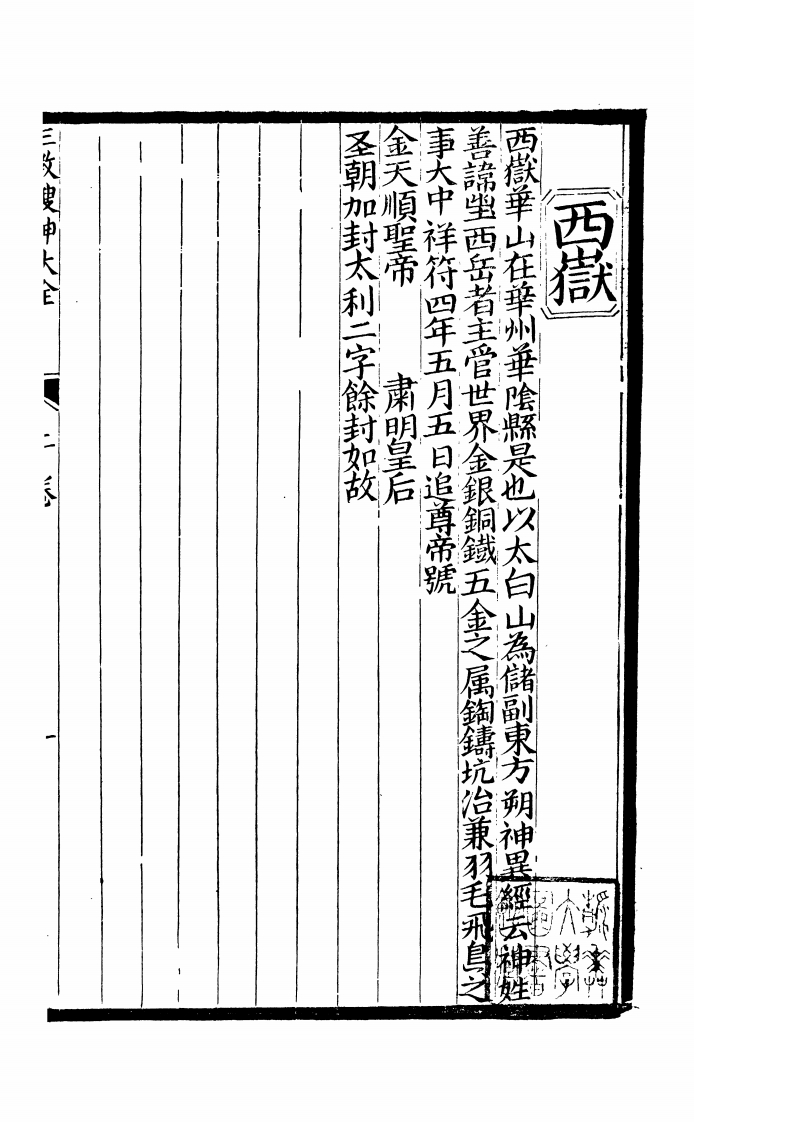 西嶽
西嶽華山在華州華隂縣是也以太白山為儲副東方朔神異經云神姓
善諱坐西岳者主管世界金銀銅鐵五金之属陶鑄坑冶兼羽毛飛鳥之
事大中祥符四年五月五日追尊帝號
金天順聖帝　肅明皇后
圣朝加封太利二字餘封如故
三教搜神大全　二卷　一